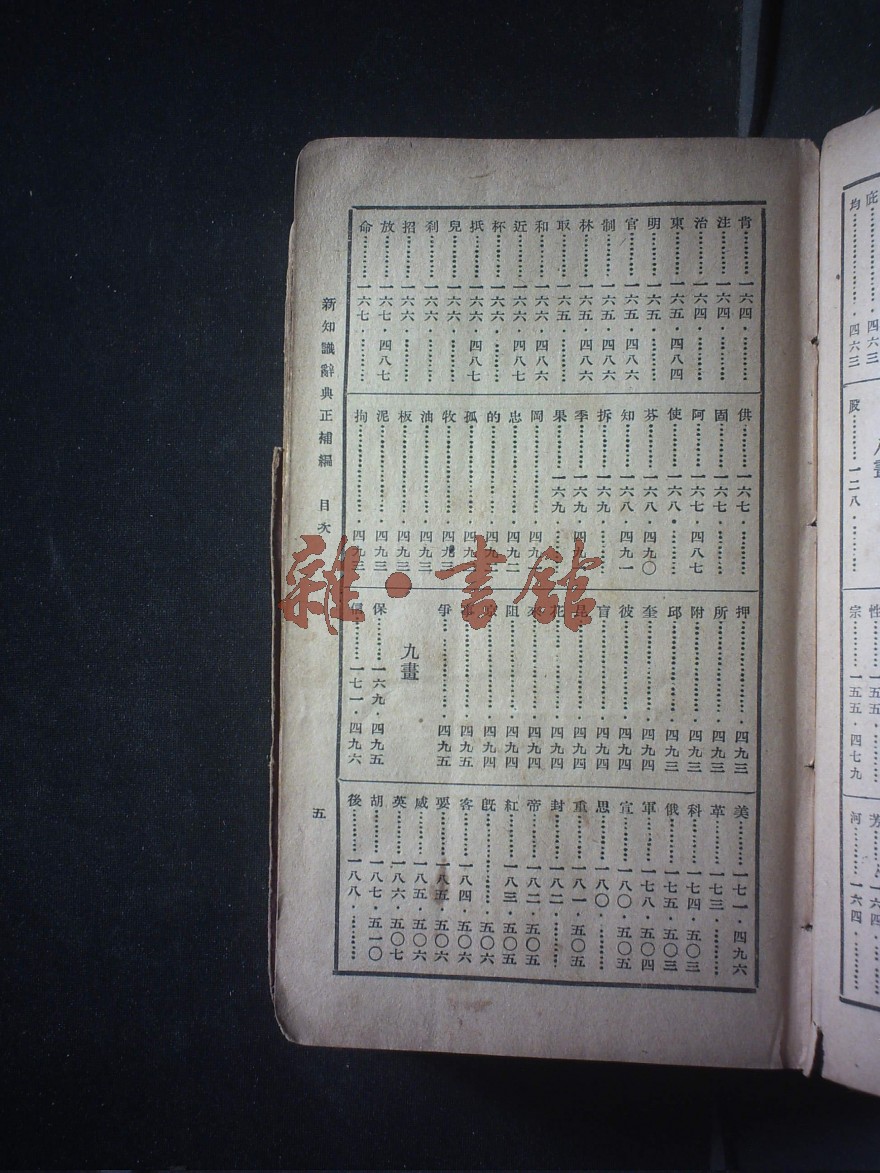 肯…………一六四…………
注…………一六四…………
治…………一六四…………
東…………一六五・四八四
明…………一六五…………
官…………一六五・四八六
制…………一六五・四八六
林…………一六五・四八六
取…………一六五…………
和…………一六六・四八六
近…………一六六・四八七
杯…………一六六…………
抵…………一六六・四八七
兒…………一六六…………
刹…………一六六…………
招…………一六六…………
放…………一六七・四八七
命…………一六七…………
供…………一六七…………
固…………一六七…………
阿…………一六七・四八七
使…………一六八…………
芬…………一六八・四九〇
知…………一六八・四九一
拆…………一六九…………
季…………一六九
果…………一六九…………
岡…………
忠…………・四九二
的…………
孤…………
牧…………・四九三
油…………・四九三
板…………・四九三
泥…………・四九三
拘…………・四九三
押…………・四九三
所…………・四九三
附…………・四九三
邱…………・四九三
奎…………・四九四
彼…………・四九四
盲…………・四九四
昆…………・四九四
花…………・四九四
來…………・四九四
阻…………・四九四
…………・四九四
…………・四九五
爭…………・四九五
九畫
保…………一六九・四九五
信…………一七一・四九六
美…………一七一・四九六
革…………一七三…………
科…………一七四・五〇三
俄…………一七五・五〇三
軍…………一七八・五〇四
宣…………一八〇・五〇五
思…………一八〇…………
重…………一八一・五〇五
封…………一八二…………
帝…………一八二・五〇五
紅…………一八三・五〇五
既…………・五〇六
客…………一八四・五〇六
要…………一八五・五〇六
威…………一八五・五〇六
英…………一八六・五〇七
胡…………一八七・五一〇
後…………一八八…………
新知識辭典正補編 目次
五
均…………・四六三
股…………一二八…………
性…………一五五…………
宗…………一五五・四七九
河…………一六四…………
雜・書館